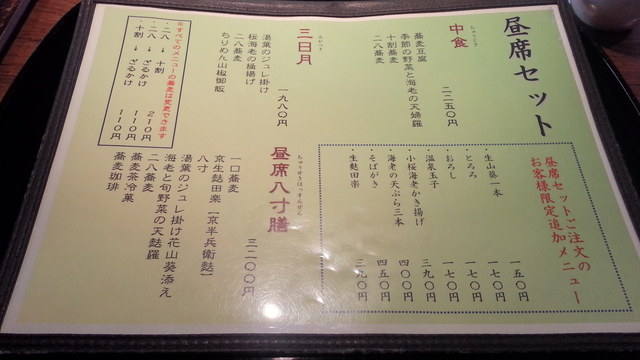 昼席セット
中食
ちゅうじき
二二五〇円
蕎麦豆腐
季節の野菜と海老の天婦羅
十割蕎麦
二八蕎麦
三日月
一九八〇円
湯葉のジュレ掛け
桜海老の掻揚げ
二八蕎麦
ちりめん山椒御飯
※すべてのメニューの蕎麦は変更できます
・二八 → 十割 210円
・二八 → ざるかけ 110円
・十割 → ざるかけ 110円
昼席セットご注文の
お客様限定追加メニュー
・生山葵一本 一五〇円
・とろろ 一七〇円
・おろし 一七〇円
・温泉玉子 一七〇円
・小桜海老かき揚げ 三九〇円
・海老の天ぷら三本 四〇〇円
・そばがき 四五〇円
・生麩田楽 三九〇円
昼席八寸膳
ちゅうせきはっすんぜん
三二〇〇円
一口蕎麦
京生麩田楽【京半兵衛麩】
八寸
湯葉のジュレ掛け花山葵添え
海老と旬野菜の天麩羅
二八蕎麦
蕎麦茶冷菓
蕎麦珈琲